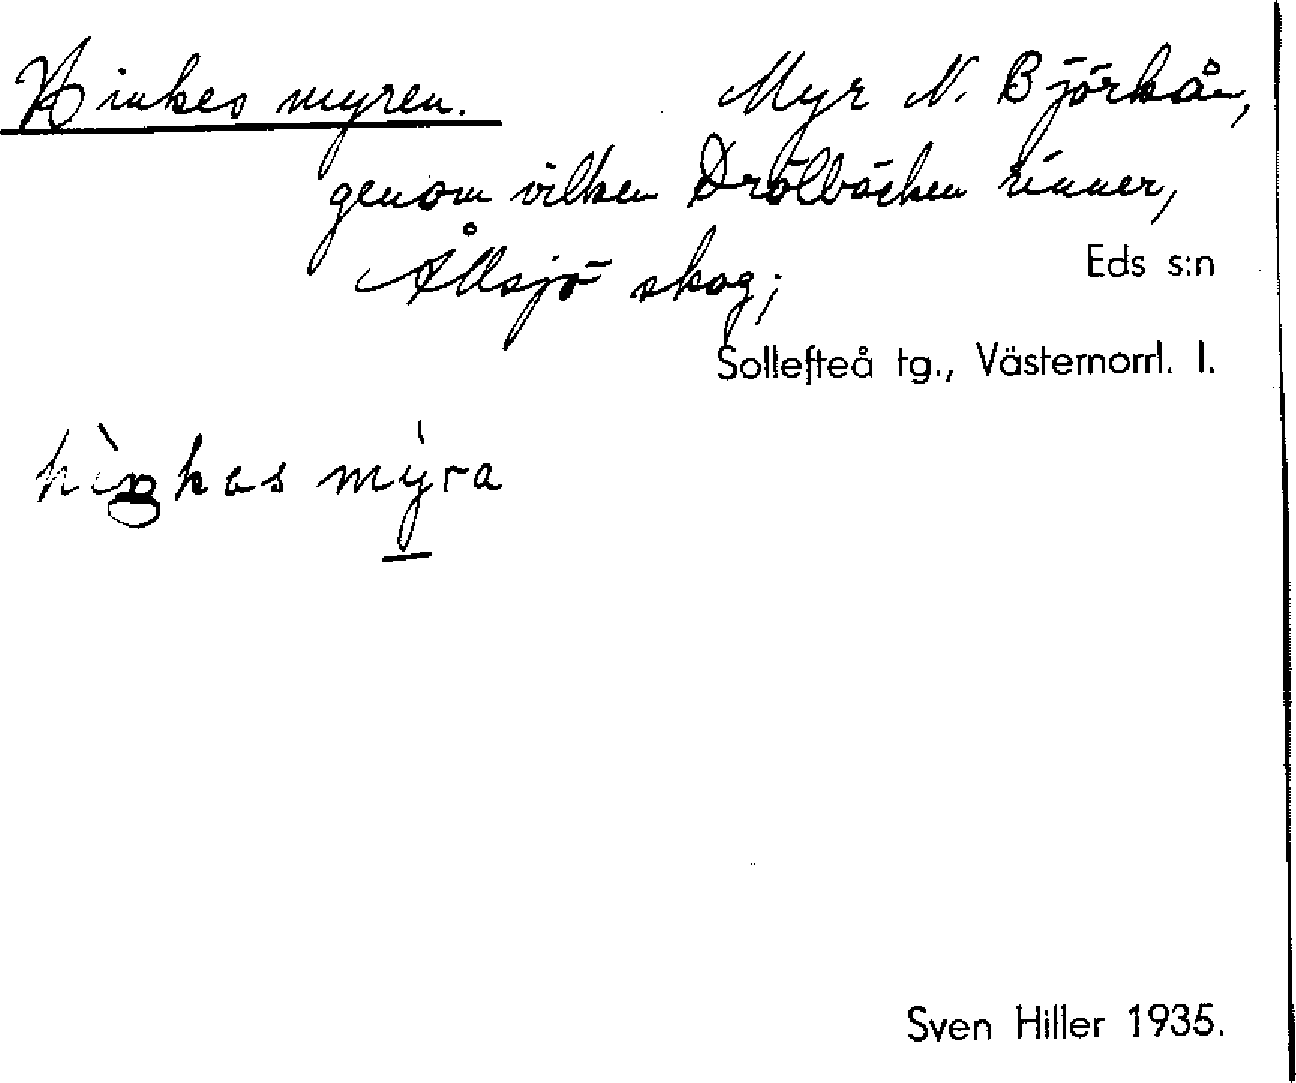 Hinkes myren. Myr N. Björkån,
genom vilken Drölbäcken rinner,
Ållsjö skog;
Eds s:n
Sollefteå tg., Västernorrl. l.
hìŋkas mýra
Sven Hiller 1935.